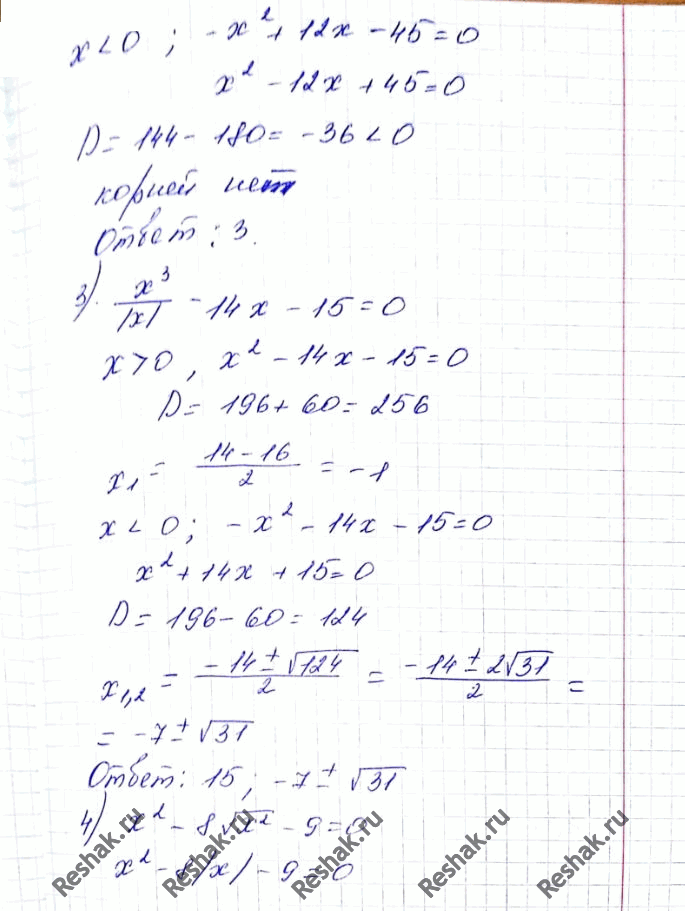 x < 0 ; -x² + 12x - 45 = 0
x² - 12x + 45 = 0
D = 144 - 180 = -36 < 0
корней нет
Ответ: 3.
3) x³/|x| - 14x - 15 = 0
x > 0, x² - 14x - 15 = 0
D = 196 + 60 = 256
x₁ = (14 - 16)/2 = -1
x < 0; -x² - 14x - 15 = 0
x² + 14x + 15 = 0
D = 196 - 60 = 124
x₁,₂ = (-14 ± √124)/2 = (-14 ± 2√31)/2 =
= -7 ± √31
Ответ: 15; -7 ± √31
4) x² - 8√x² - 9 = 0
x² - 8|x| - 9 = 0
Reshak.ru Reshak.ru Reshak.ru Reshak.ru Reshak.ru